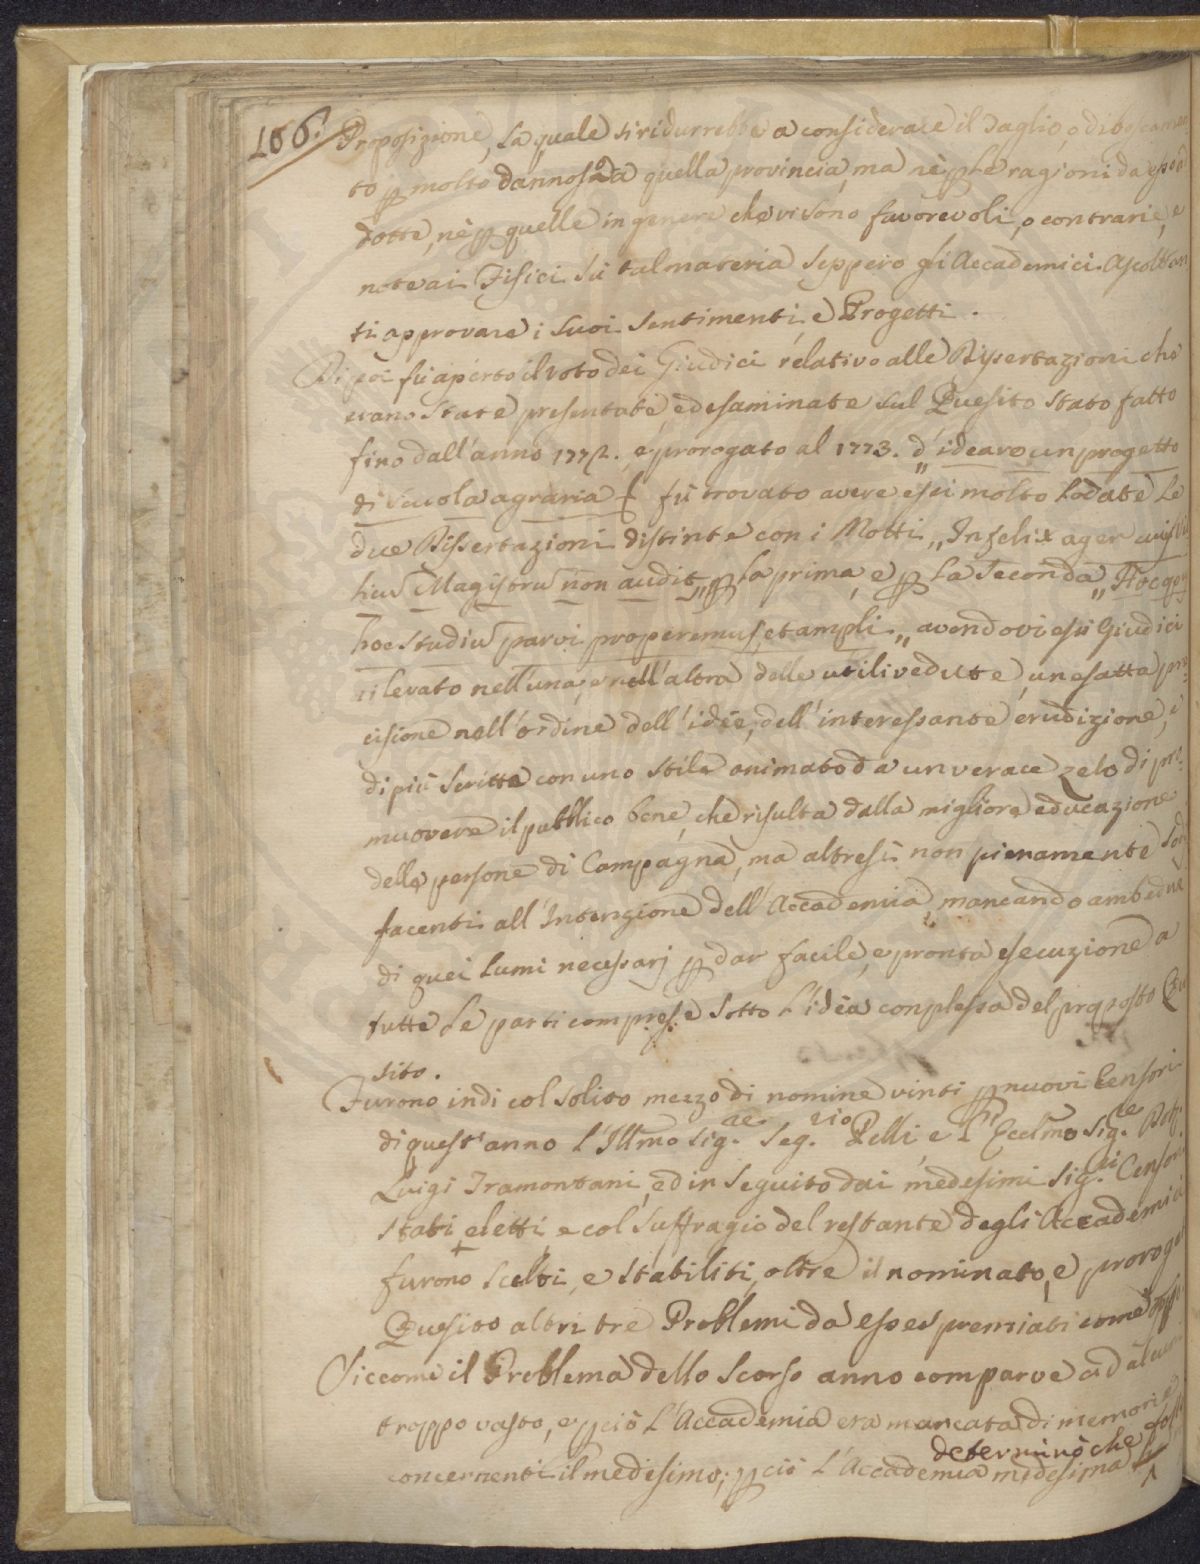 106.
Proposizione, la quale si ridurrebbe a considerare il taglio, o diboscamen
to p molto dannoso a quella provincia, ma nè p le ragioni da esso ad
dotte, nè p quelle in genere che vi sono favorevoli, o contrarie, e
note ai Fisici sù tal materia seppero gli Accademici Ascoltan
ti approvare i suoi sentimenti, e Progetti.
Di poi fù aperto il voto dei Giudici relativo alle Dissertazioni che
erano state presentate, ed esaminate sul Quesito stato fatto
fino dall'anno 1772. e prorogato al 1773. d',, ideare un progetto
di scuola agraria fù trovato avere essi molto lodate le
due Dissertazioni distinte con i Motti ,, Infelix ager cuius Vil
licus Magistru non audit ,, p la prima, e p la seconda ,, Hoc opus
hoc studiu parvi properemus, et ampli ,, avendovi essi Giudici
rilevato nell'una, e nell'altra delle utili vedute, un esatta pre
cisione nell'ordine dell'idee, dell'interessante erudizione, e
di più scritte con uno stile animato da un verace zelo di pro
muovere il pubblico bene, che risulta dalla migliore educazione
delle persone di Campagna, ma altresì non pienamente sod
facenti all'Intenzione dell'Accademia, mancando ambedue
di quei lumi necessarj p dar facile, e pronta esecuzione a
tutte le parti comprese sotto l'idea complessa del proposto Que
sito.
Furono indi col solito mezzo di nomine vinti p nuovi Censori
di quest'anno l'Illmo Sig.re Seg.rio Pelli, e l'Eccelmo Sig.re Dott.
Luigi Tramontani, ed in seguito dai medesimi Sig.ri Censori
stati eletti e col suffragio del restante degli Accademici
furono scelti, e stabiliti, oltre il nominato, e prorogato
Quesito altri tre Problemi da essere premiati come
Siccome il Problema dello scorso anno comparve ad alcuni
troppo vasto, e pciò l'Accademia era mancata di memorie
determinò che
concernenti il medesimo; pciò l'Accademia medesima